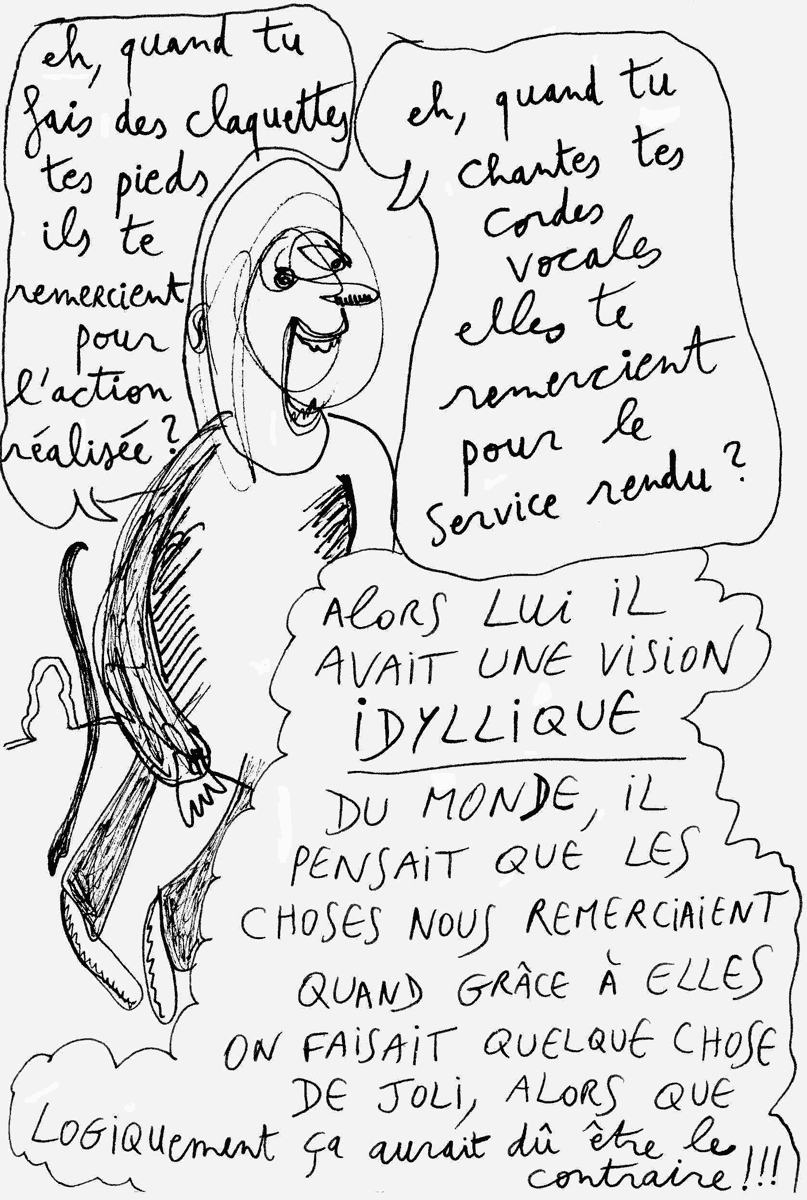 eh, quand tu
fais des claquettes
tes pieds
ils te
remercient
pour
l'action
réalisée ?
eh, quand tu
chantes tes
cordes
vocales
elles te
remercient
pour le
service rendu ?
ALORS LUI IL
AVAIT UNE VISION
IDYLLIQUE
DU MONDE, IL
PENSAIT QUE LES
CHOSES NOUS REMERCIAIENT
QUAND GRÂCE À ELLES
ON FAISAIT QUELQUE CHOSE
DE JOLI, ALORS QUE
LOGIQUement ça aurait dû être le
contraire !!!